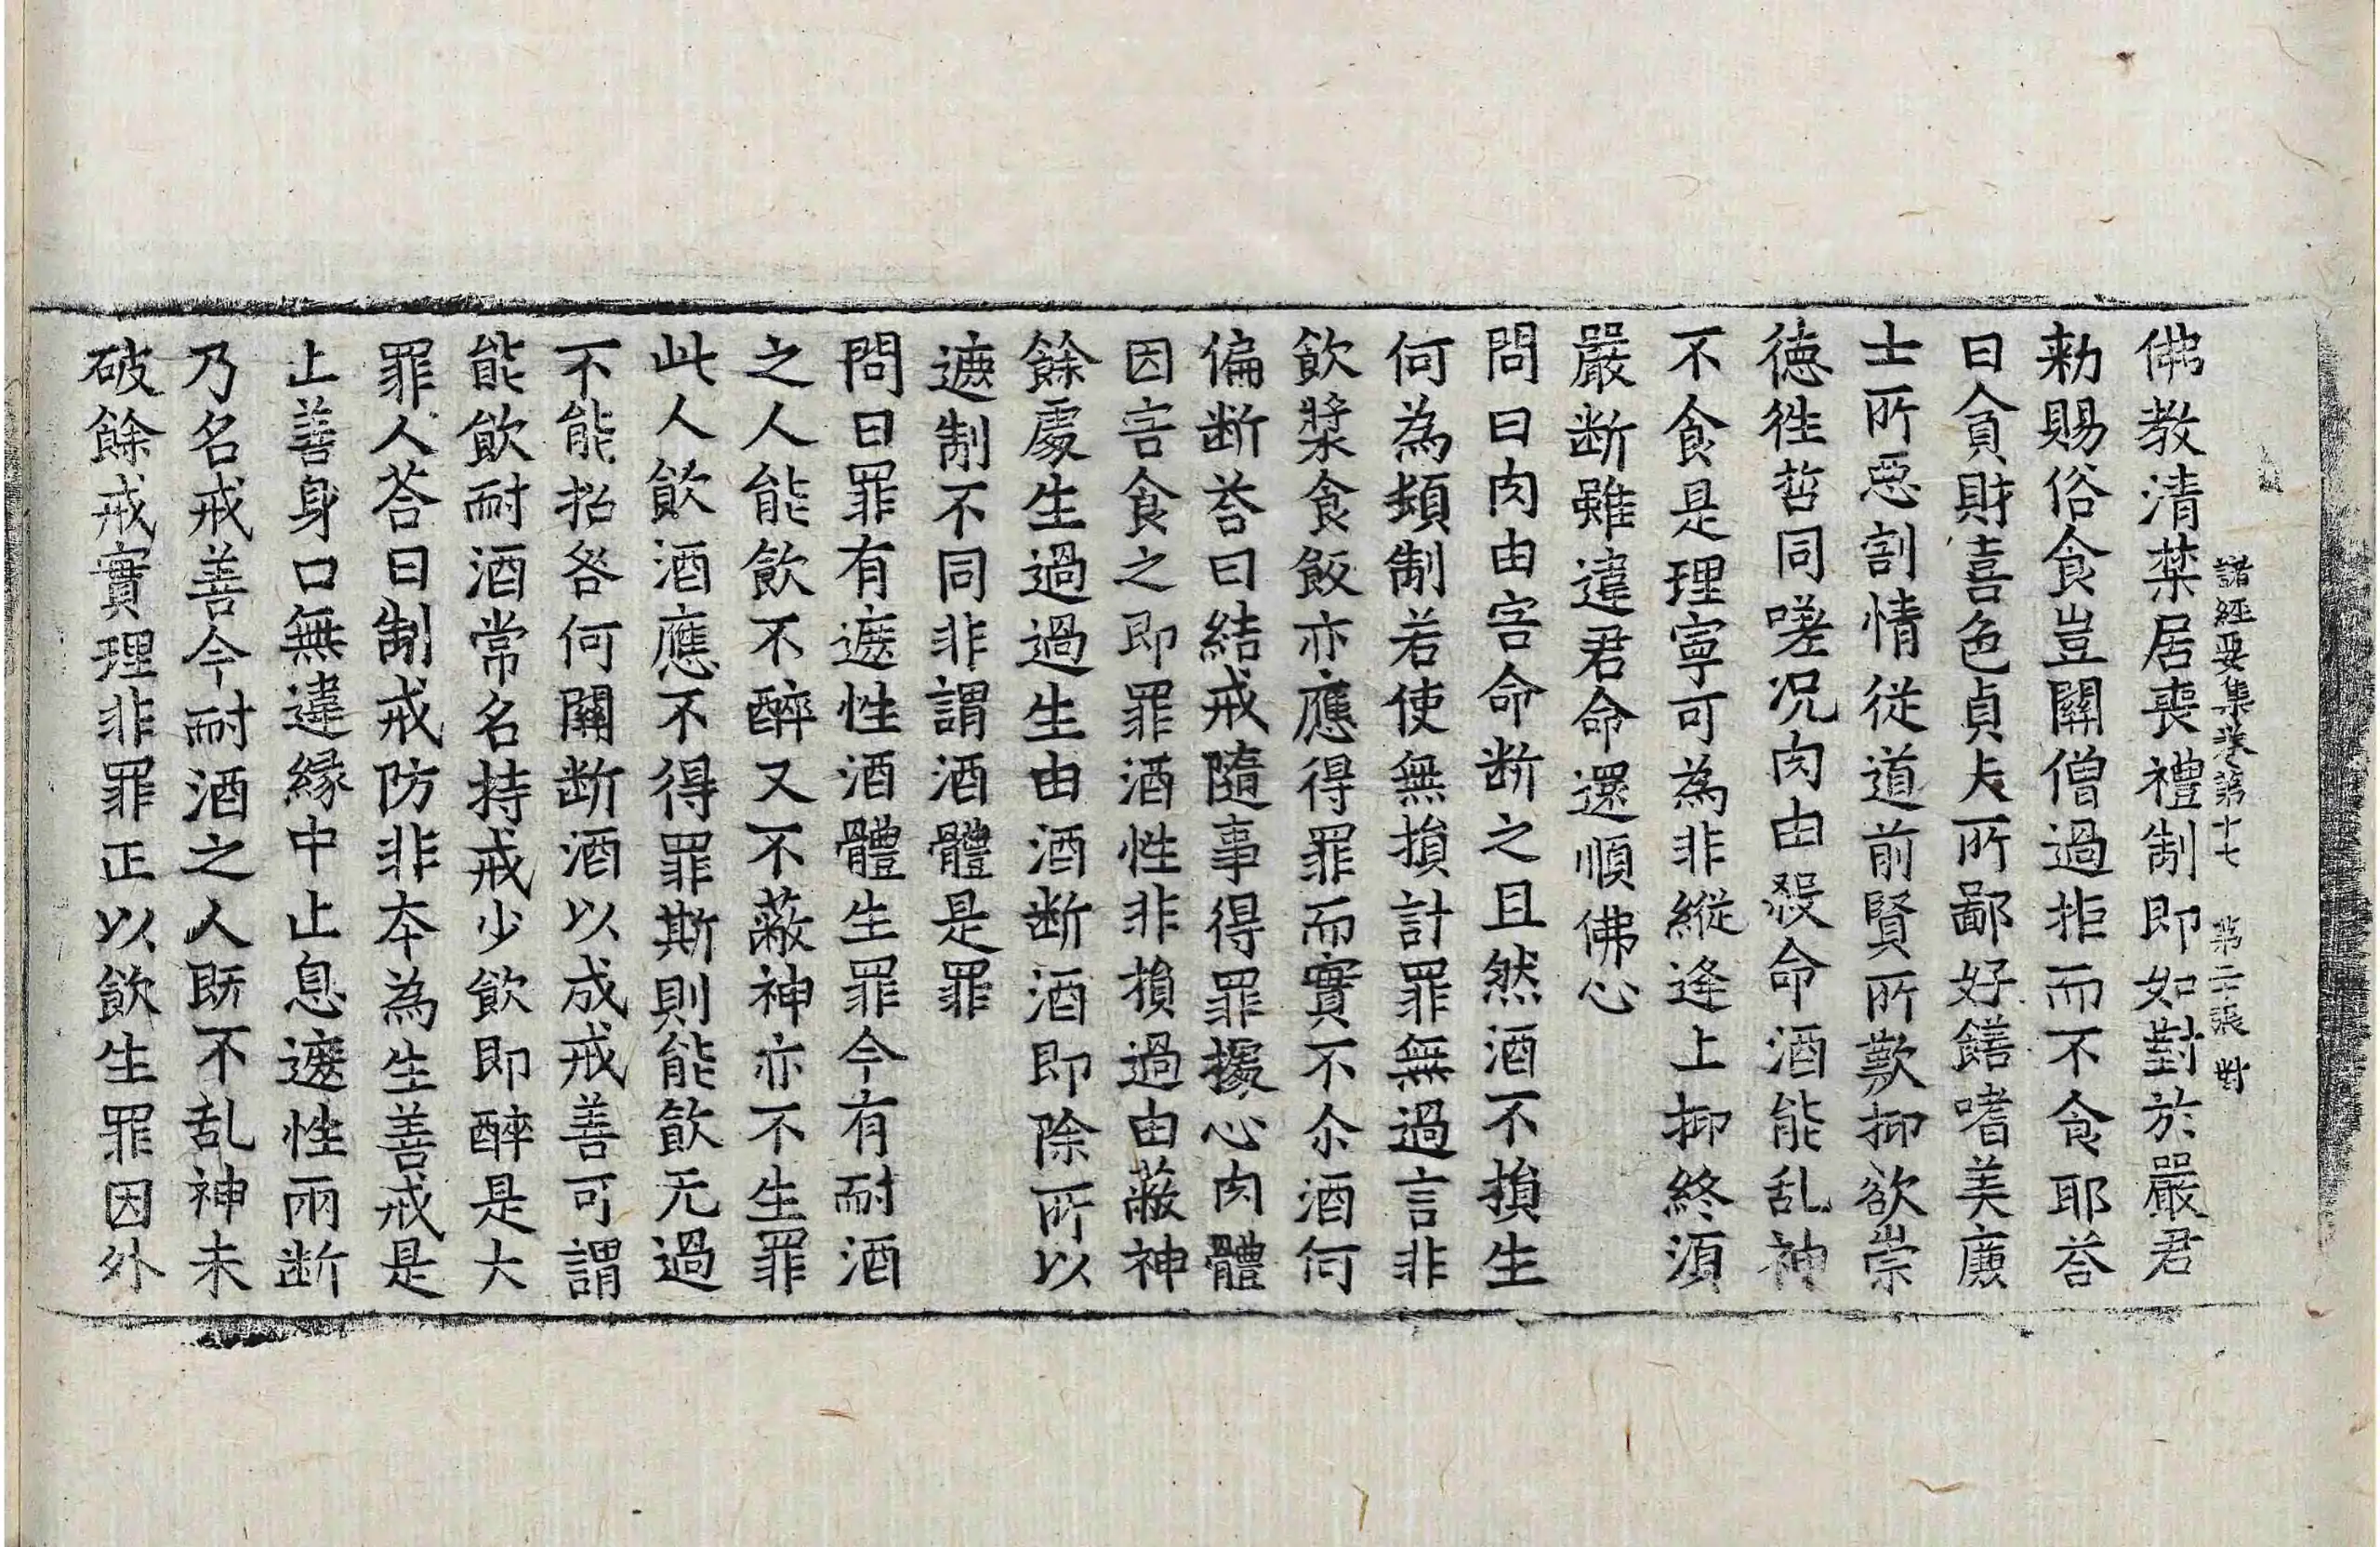 諸經要集卷第十七 第二張 對
佛教清禁居喪禮制即如對於嚴君
勑賜俗食豈關僧過拒而不食耶荅
曰貪財喜色貞夫所鄙好饍嗜美廉
士所惡割情從道前賢所歎抑欲崇
德徃哲同嗟况肉由殺命酒能乱神
不食是理寧可為非縱逢上抑終須
嚴断雖違君命還順佛心
問曰肉由害命断之且然酒不損生
何為頻制若使無損計罪無過言非
飲漿食飯亦應得罪而實不尒酒何
偏断荅曰結戒隨事得罪據心肉體
因害食之即罪酒性非損過由蔽神
餘處生過過生由酒断酒即除所以
遮制不同非謂酒體是罪
問曰罪有遮性酒體生罪今有耐酒
之人能飲不醉又不蔽神亦不生罪
此人飲酒應不得罪斯則能飲无過
不能招咎何關断酒以成戒善可謂
能飲耐酒常名持戒少飲即醉是大
罪人荅曰制戒防非夲為生善戒是
止善身口無違緣中止息遮性兩断
乃名戒善今耐酒之人既不乱神未
破餘戒實理非罪正以飲生罪因外